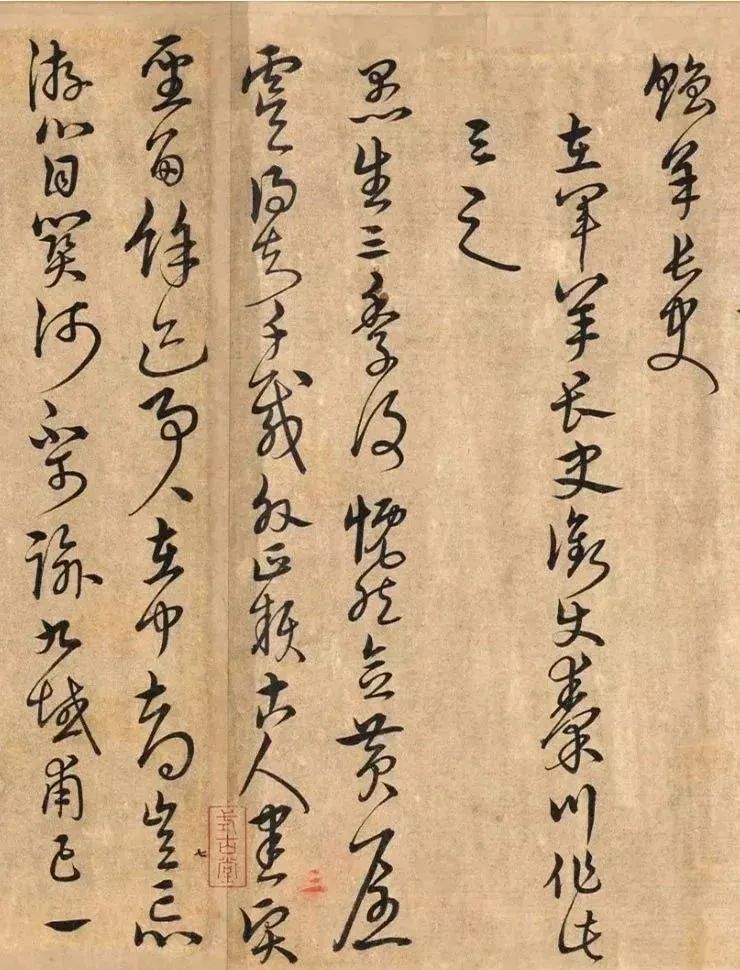 贈羊長史
左軍羊長史銜使秦川作此
与之
愚生三季後慨然念黃屋
虞得知千載外正賴古人書賢
聖留餘迹事〻在中都豈忘
游心目關河不可踰九域甫已一
式古堂
三
七